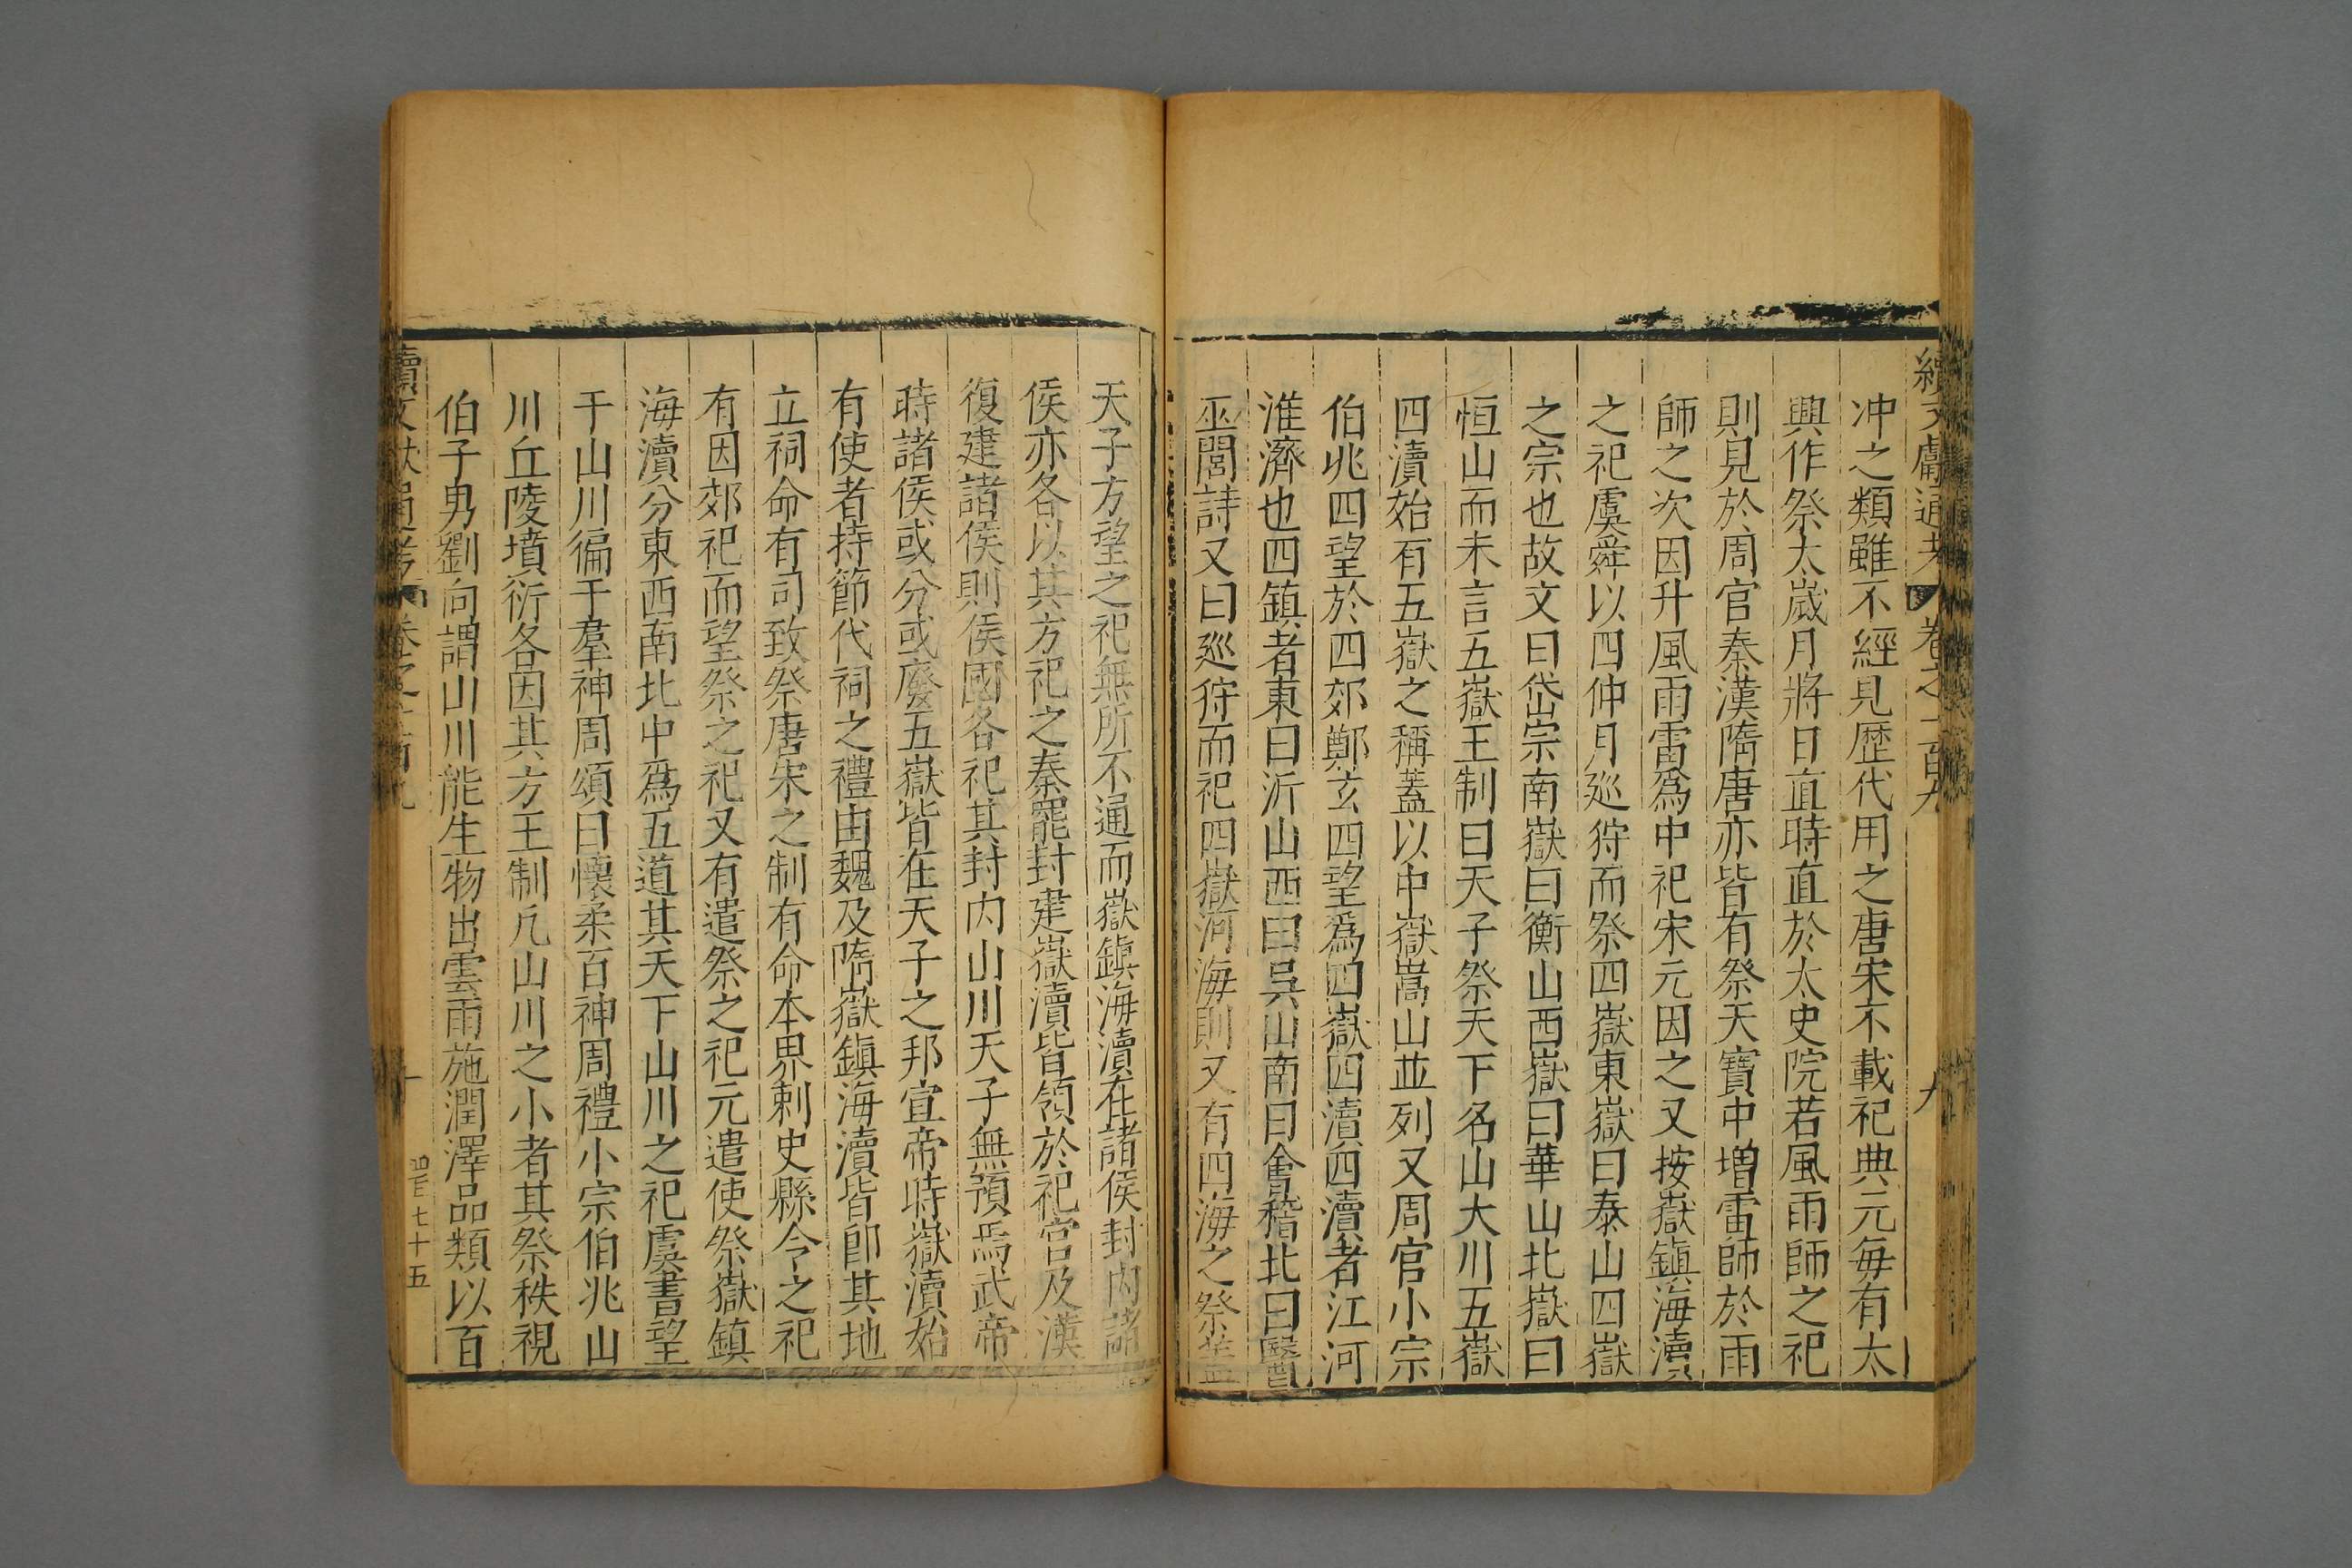 續文獻通考 卷之一百九 九
冲之類雖不經見歴代用之唐宋不載祀典元每有太
興作祭太歲月將日直時直於太史院若風雨師之祀
則見於周官秦漢隋唐亦皆有祭天寶中增雷師於雨
師之次因升風雨雷爲中祀宋元因之又按嶽鎮海瀆
之祀虞舜以四仲月廵狩而祭四嶽東嶽曰泰山四嶽
之宗也故文曰岱宗南嶽曰衡山西嶽曰華山北嶽曰
恒山而未言五嶽王制曰天子祭天下名山大川五嶽
四瀆始有五嶽之稱蓋以中嶽嵩山並列又周官小宗
伯兆四望於四郊鄭玄四望爲四嶽四瀆四瀆者江河
淮濟也四鎮者東曰沂山西曰吳山南曰會稽北曰醫
巫閭詩又曰廵狩而祀四嶽河海則又有四海之祭蓋
天子方望之祀無所不通而嶽鎮海瀆在諸侯封內諸
侯亦各以其方祀之秦罷封建嶽瀆皆領於祀宫及漢
復建諸侯則侯國各祀其封内山川天子無預焉武帝
時諸侯或分或廢五嶽皆在天子之邦宣帝時嶽瀆始
有使者持節代祠之禮由魏及隋嶽鎮海瀆皆卽其地
立祠命有司致祭唐宋之制有命本界刺史縣令之祀
有因郊祀而望祭之祀又有遣祭之祀元遣使祭嶽鎮
海瀆分東西南北中爲五道其天下山川之祀虞書望
于山川徧于羣神周頌曰懷柔百神周禮小宗伯兆山
川丘陵墳衍各因其方王制凢山川之小者其祭秩視
伯子男劉向謂山川能生物出雲雨施潤澤品類以百
續文獻通考 卷之一百九 十 七十五